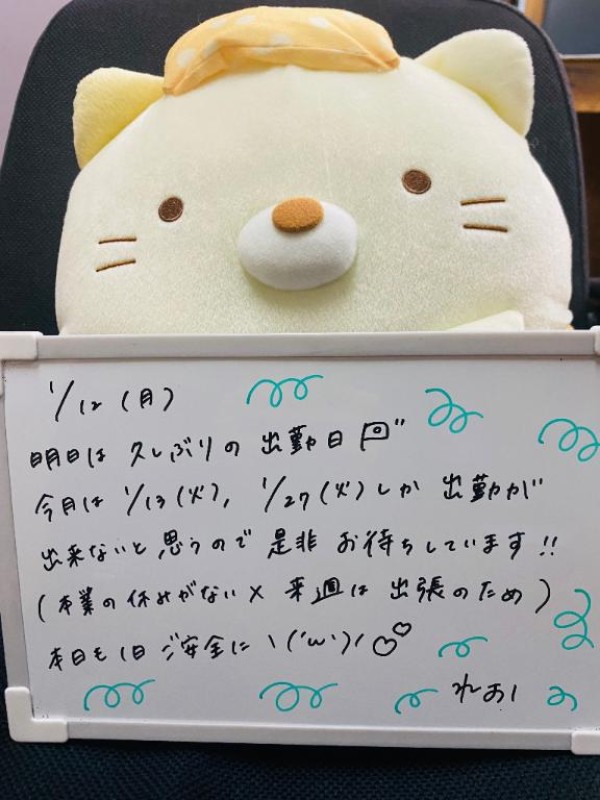 1/12(月)
明日は 久しぶりの 出勤日
今月は 1/13(火), 1/27(火)しか 出勤が
出来ないと思うので 是非 お待ちしています!!
(本業の休みがない× 来週は 出張のため)
本日も1日 ご安全に ヽ('ω')ノ
れおん